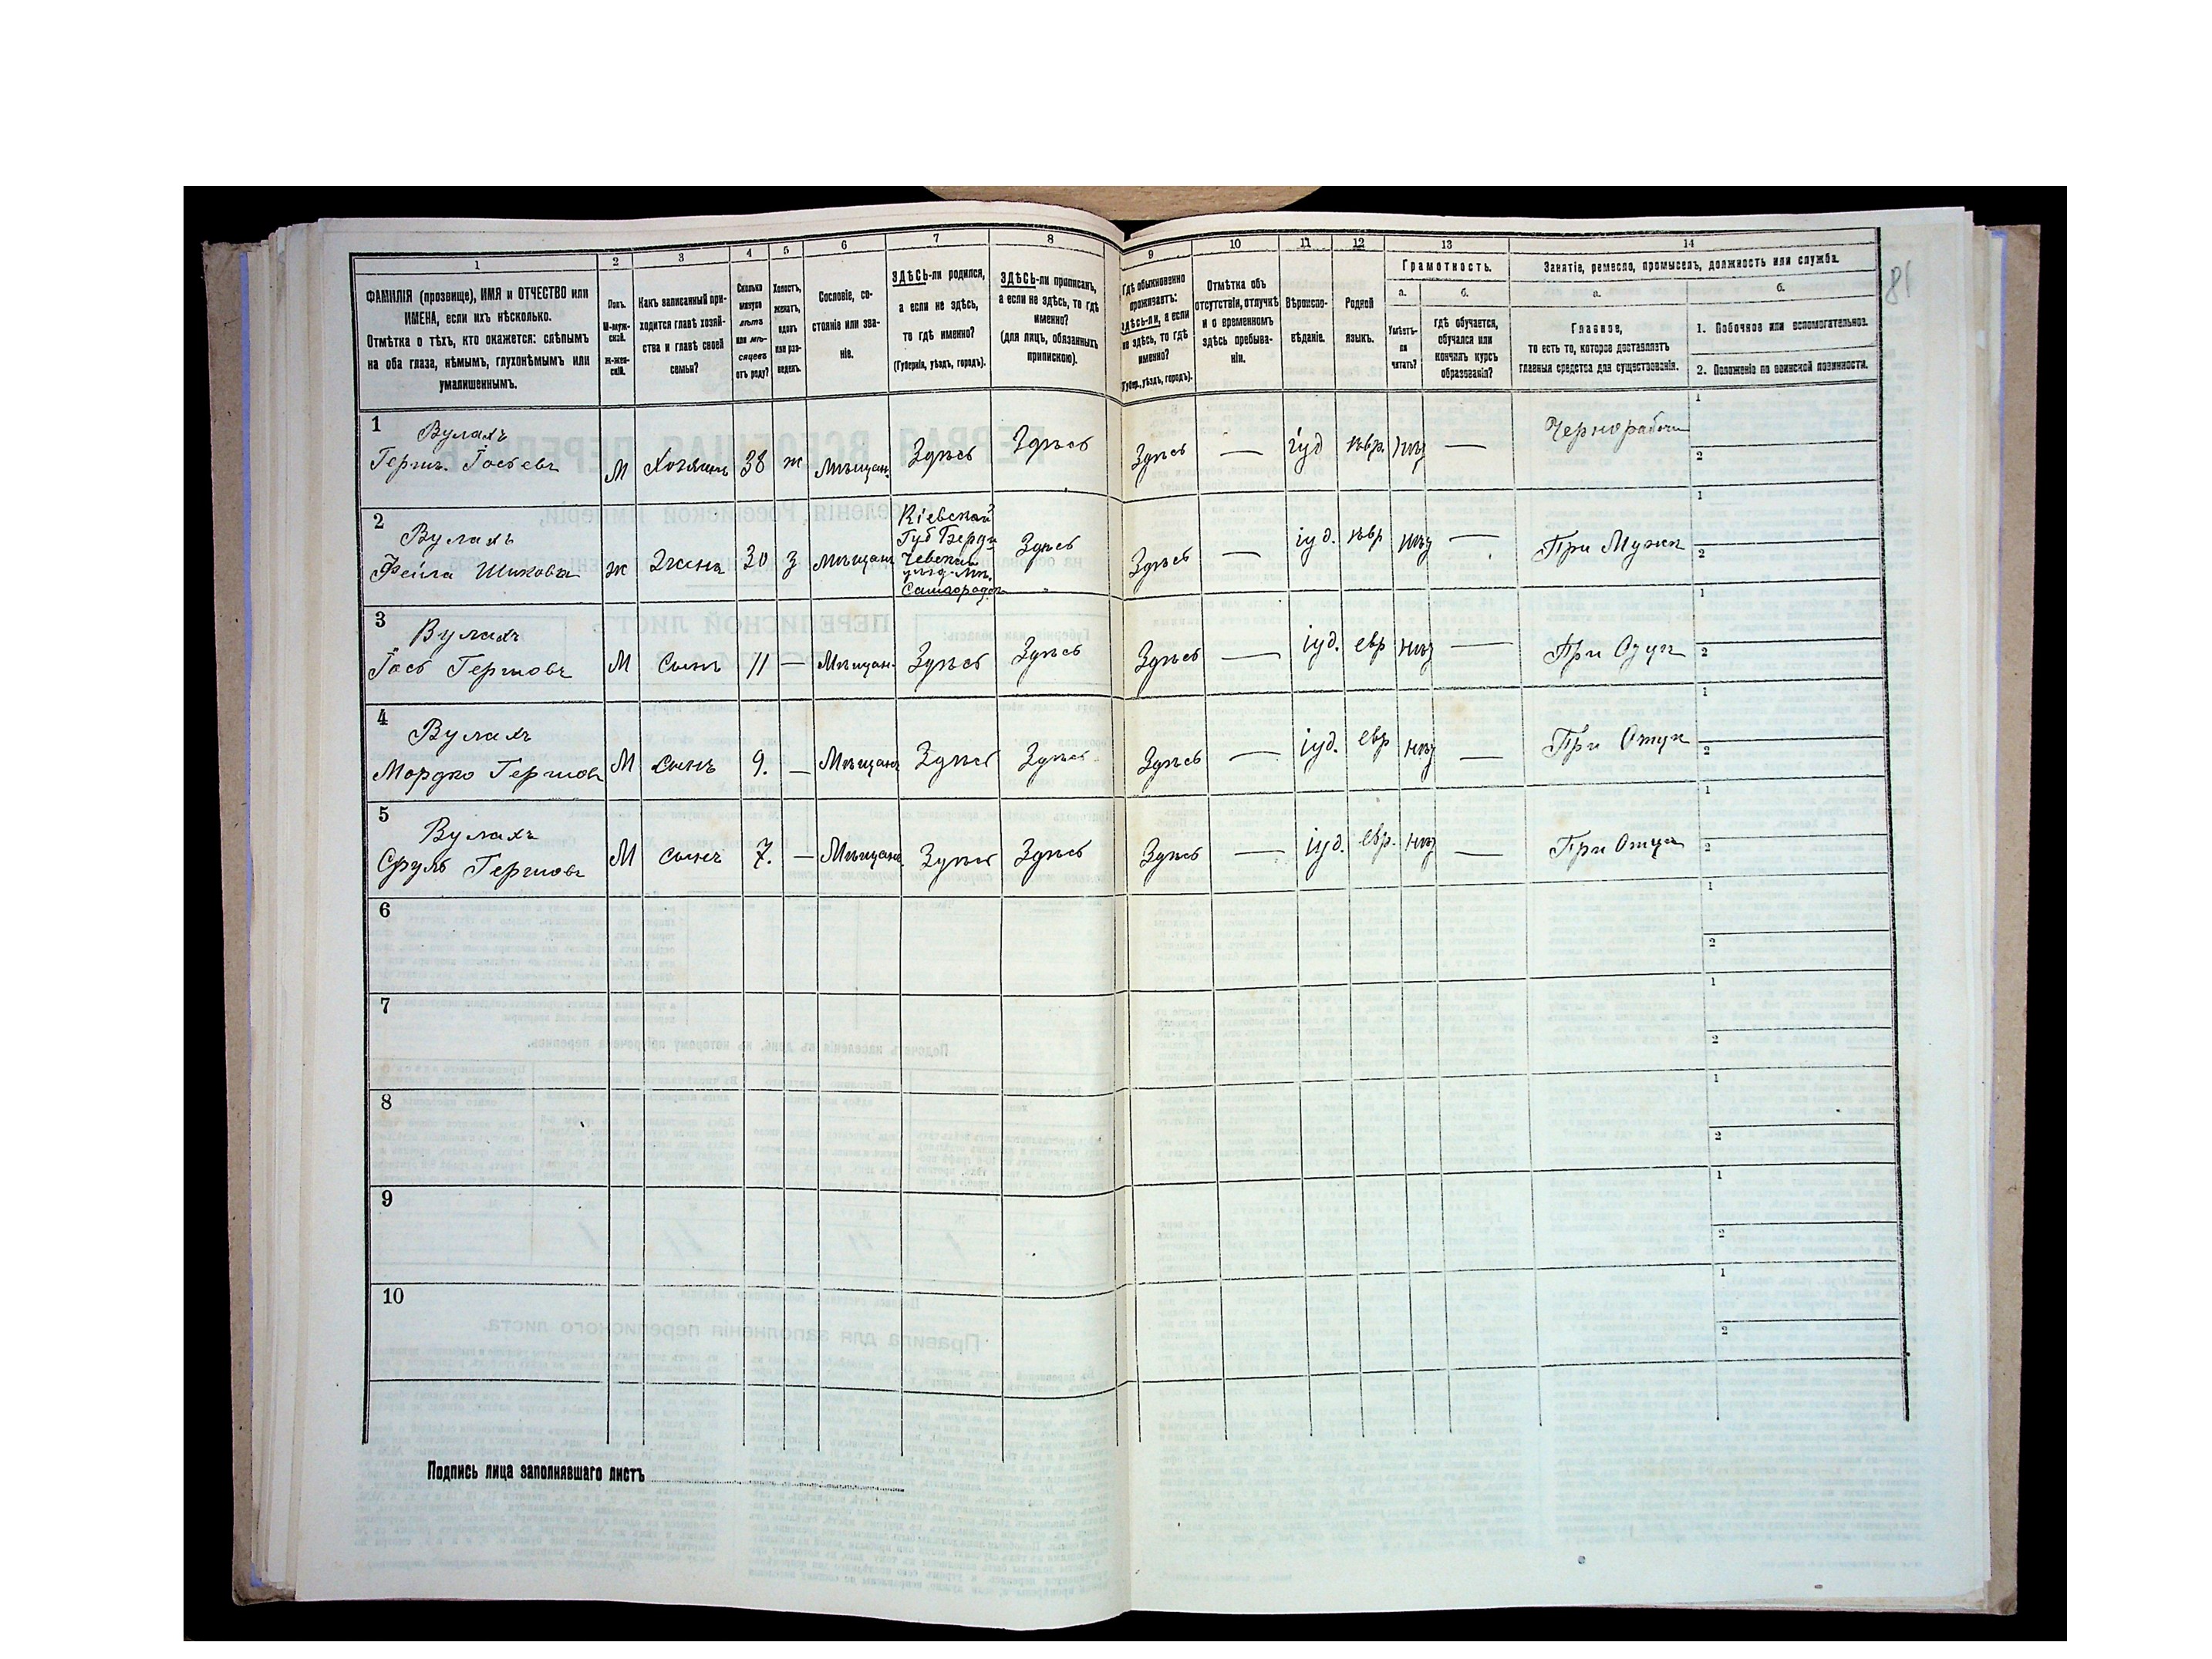 1
2
3
4
5
6
7
8
9
10
11
12
13
14
ФАМИЛІЯ (прозвище), ИМЯ и ОТЧЕСТВО или
ИМЕНА, если ихъ нѣсколько.
Отмѣтка о тѣхъ, кто окажется: слѣпымъ
на оба глаза, нѣмымъ, глухонѣмымъ или
умалишеннымъ.
Полъ.
М-муж-
ской.
Ж-жен-
скій.
Какъ записанный при-
ходится главѣ хозяй-
ства и главѣ своей
семьи?
Сколько
минуло
лѣтъ
или мѣ-
сяцевъ
отъ роду?
Холостъ,
женатъ,
вдовъ
или раз-
веденъ.
Сословіе, со-
стояніе или зва-
ніе.
ЗДѢСЬ-ли родился,
а если не здѣсь,
то гдѣ именно?
(Губернія, уѣздъ, городъ).
ЗДѢСЬ-ли приписанъ,
а если не здѣсь, то гдѣ
именно?
(для лицъ, обязанныхъ
припискою).
Гдѣ обыкновенно
проживаетъ:
здѣсь-ли, а если
не здѣсь, то гдѣ
именно?
(Губер., уѣздъ, городъ).
Отмѣтка объ
отсутствіи, отлучкѣ
и о временномъ
здѣсь пребыва-
ніи.
Вѣроиспо-
вѣданіе.
Родной
языкъ.
Грамотность.
а.
Умѣетъ-
ли
читать?
б.
гдѣ обучается,
обучался или
кончилъ курсъ
образованія?
Занятіе, ремесло, промыселъ, должность или служба.
а.
Главное,
то есть то, которое доставляетъ
главныя средства для существованія.
б.
1. Побочное или вспомогательное.
2. Положеніе по воинской повинности.
81
1
Вулахъ
Герш. Іосьевъ
М
Хозяинъ
38
ж
Мѣщан.
Здѣсь
Здѣсь
Здѣсь
—
іуд
евр.
нѣтъ
—
Чернорабочи
1
2
2
Вулахъ
Фейга Шикова
ж
Жена
30
З
Мѣщан
Кіевской
Губ Берди
чевскаи
уѣзд. Мѣ.
Самгородок
Здѣсь
Здѣсь
—
іуд.
евр
нѣтъ
—
При Мужи
1
2
3
Вулахъ
Іось Гершовъ
М
сынъ
11
—
Мѣщан.
Здѣсь
Здѣсь
Здѣсь
—
іуд.
евр
нѣтъ
—
При Отци
1
2
4
Вулахъ
Мордко Гершов
М
сынъ
9.
—
Мѣщан
Здѣсь
Здѣсь
Здѣсь
—
іуд.
евр
нѣтъ
—
При Отци
1
2
5
Вулахъ
Сруль Гершовъ
М
сынъ
7.
—
Мѣщан
Здѣсь
Здѣсь
Здѣсь
—
іуд.
евр.
нѣтъ
—
При Отци
1
2
6
1
2
7
1
2
8
1
2
9
1
2
10
1
2
Подпись лица заполнявшаго листъ